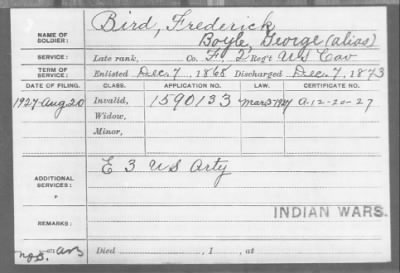 NAME OF SOLDIER: Bird, Frederick
Boyle, George (alias)
SERVICE: Late rank, Co. F, 2 Reg't US Cav
TERM OF SERVICE: Enlisted Dec. 7, 1868 Discharged Dec. 7, 1873
DATE OF FILING. CLASS. APPLICATION NO. LAW. CERTIFICATE NO.
1927-Aug 20 Invalid, 1590133 Mar 3-1927 A-12-20-27
Widow,
Minor,
ADDITIONAL SERVICES: E 3 US Arty
INDIAN WARS.
REMARKS:
Died , 1 , at